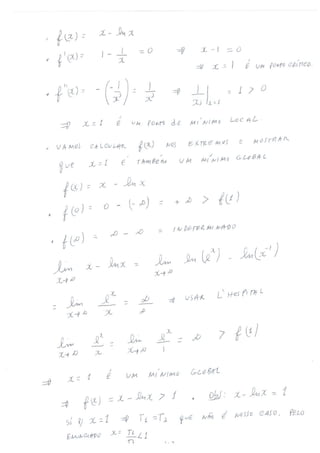 • f(x) = x - ln x
• f'(x) = 1 - 1/x = 0 ⇒ x - 1 = 0
⇒ x = 1 É UM PONTO CRÍTICO.
• f''(x) = - (- 1/x²) = 1/x² ⇒ 1/x² |x=1 = 1 > 0
⇒ x = 1 É UM PONTO DE MÍNIMO LOCAL
• VAMOS CALCULAR f(x) NOS EXTREMOS E MOSTRAR
QUE x = 1 É TAMBÉM UM MÍNIMO GLOBAL
f(x) = x - ln x
• f(0) = 0 - (-∞) = +∞ > f(1)
• f(∞) = ∞ - ∞ = INDETERMINADO
lim x→∞ x - ln x = lim x→∞ ln(e^x) - ln(x^-1)
= lim x→∞ e^x/x = ∞/∞ ⇒ USAR L'HOSPITAL
lim x→∞ e^x/x = lim x→∞ e^x/1 = ∞ > f(1)
⇒ x = 1 É UM MÍNIMO GLOBAL
⇒ f(x) = x - ln x > 1 . Obs: x - ln x = 1
SÓ SE x = 1 ⇒ T1 = T2 QUE NÃO É NOSSO CASO, PELO
ENUNCIADO x = T2/T1 < 1 ...